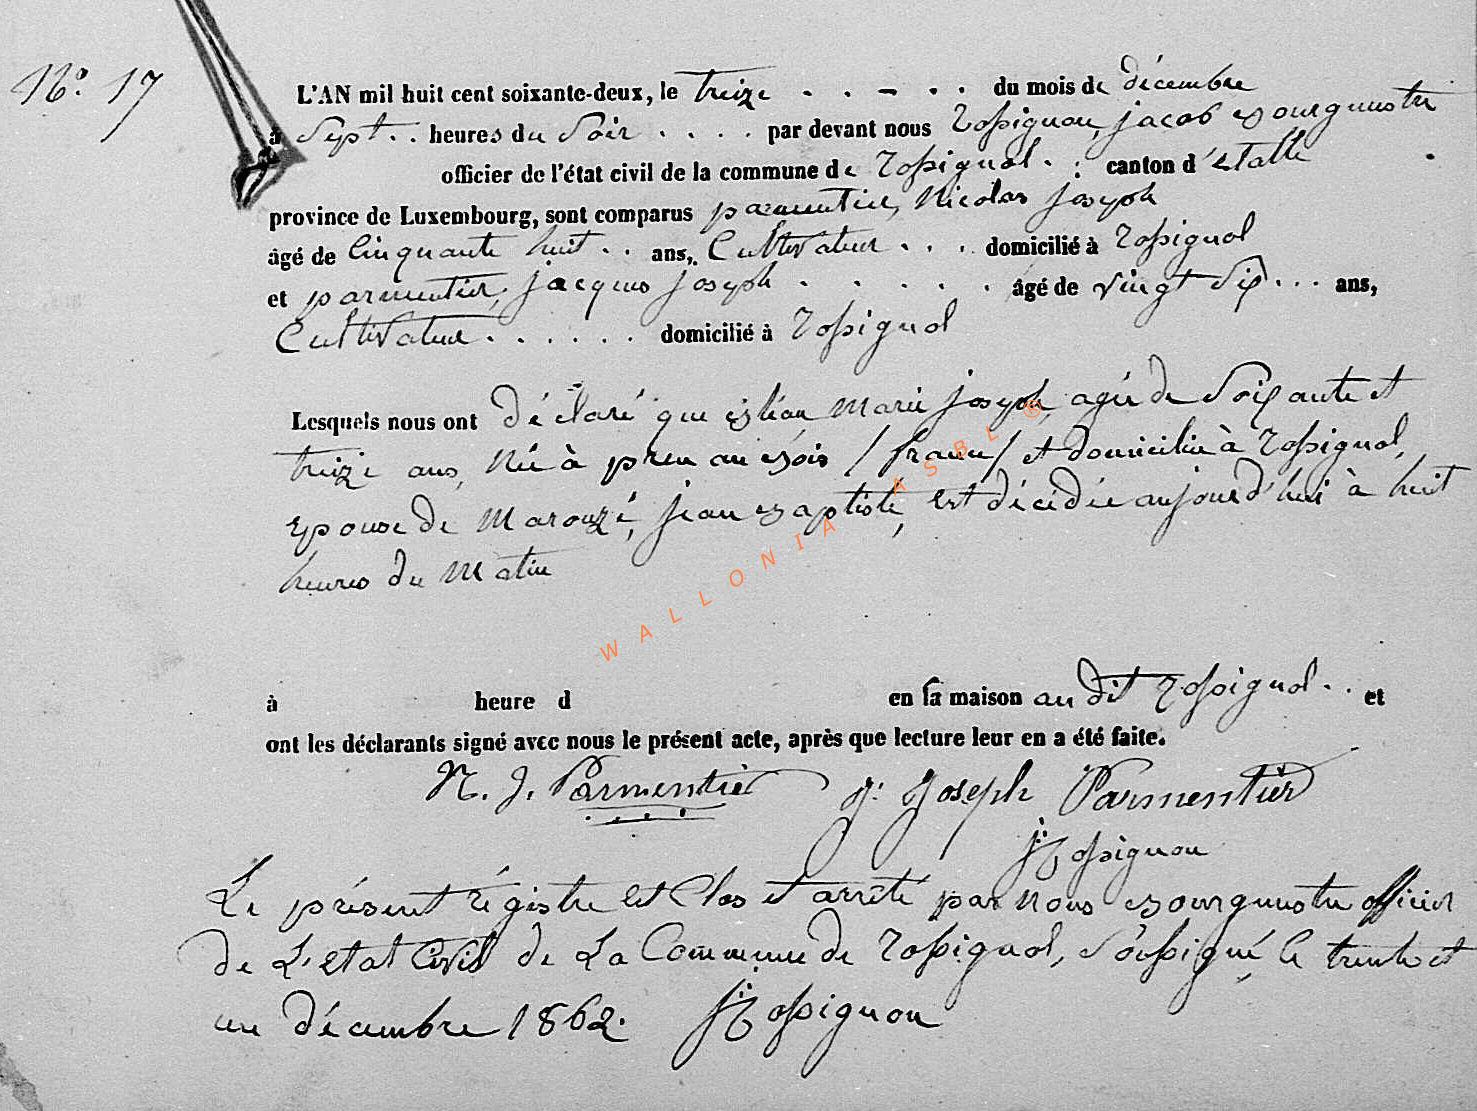 N°. 17
L'AN mil huit cent soixante-deux, le treize . . - . . du mois de décembre
à Sept . . heures du Soir . . . . par devant nous Rossignon, jacob Bourgmestre
officier de l'état civil de la commune de Rossignol . . canton d'Etalle
province de Luxembourg, sont comparus parmentier, Nicolas joseph
âgé de Cinquante huit . . ans, Cultivateur . . . domicilié à Rossignol
et parmentier, jacques joseph . . . . . âgé de vingt Six . . . ans,
Cultivateur . . . . . . domicilié à Rossignol
Lesquels nous ont déclaré que Marie joseph, agée de Soixante et
treize ans, Née à preu au Bois / france / et domiciliée à Rossignol,
Epouse de Marouzé, jean Baptiste, est décédée aujourd'hui à huit
heures du Matin
à heure d en sa maison au dit Rossignol . . et
ont les déclarants signé avec nous le présent acte, après que lecture leur en a été faite.
N. J. Parmentier J. Joseph Parmentier
J. Rossignon
Le présent régistre est Clos et arrêté par Nous Bourgmestre officier
de L'etat Civil de La Commune de Rossignol, Soussigné, le trente et
un décembre 1862. J. Rossignon
WALLONIA ASBL ®